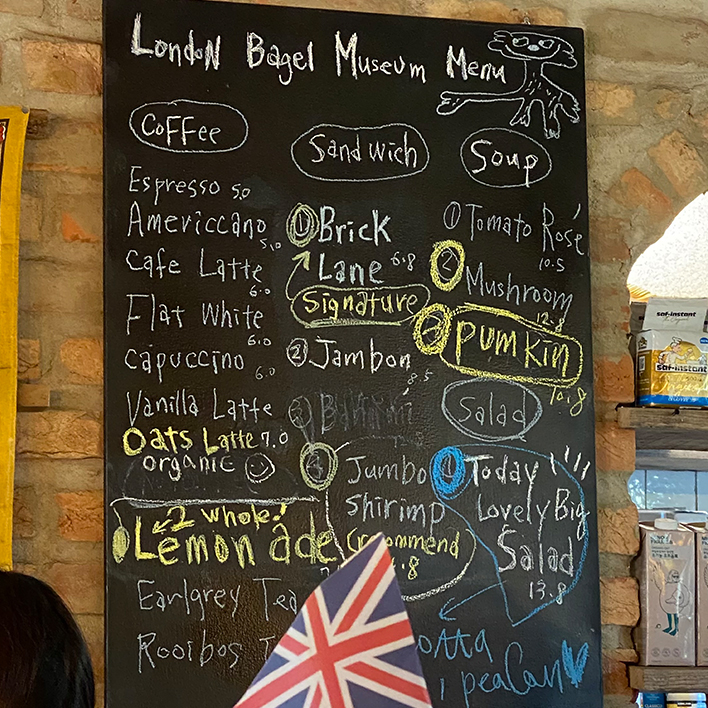 London Bagel Museum Menu
Coffee
Espresso 5.0
Americcano 5.0
Cafe Latte 6.0
Flat White 6.0
Capuccino 6.0
Vanilla Latte
Oats Latte 7.0
organic
2 whole!
Lemon ade
Earlgrey Tea
Rooibos
Sandwich
① Brick
Lane 6.8
Signature
② Jambon
8.5
③
④ Jumbo
Shirimp
Crecommend
Soup
① Tomato Rosé
10.5
② Mushroom
12.8
Pumkin
10.8
Salad
① Today
Lovely Big
Salad
13.8
peaCan
saf-instant
saf-instant